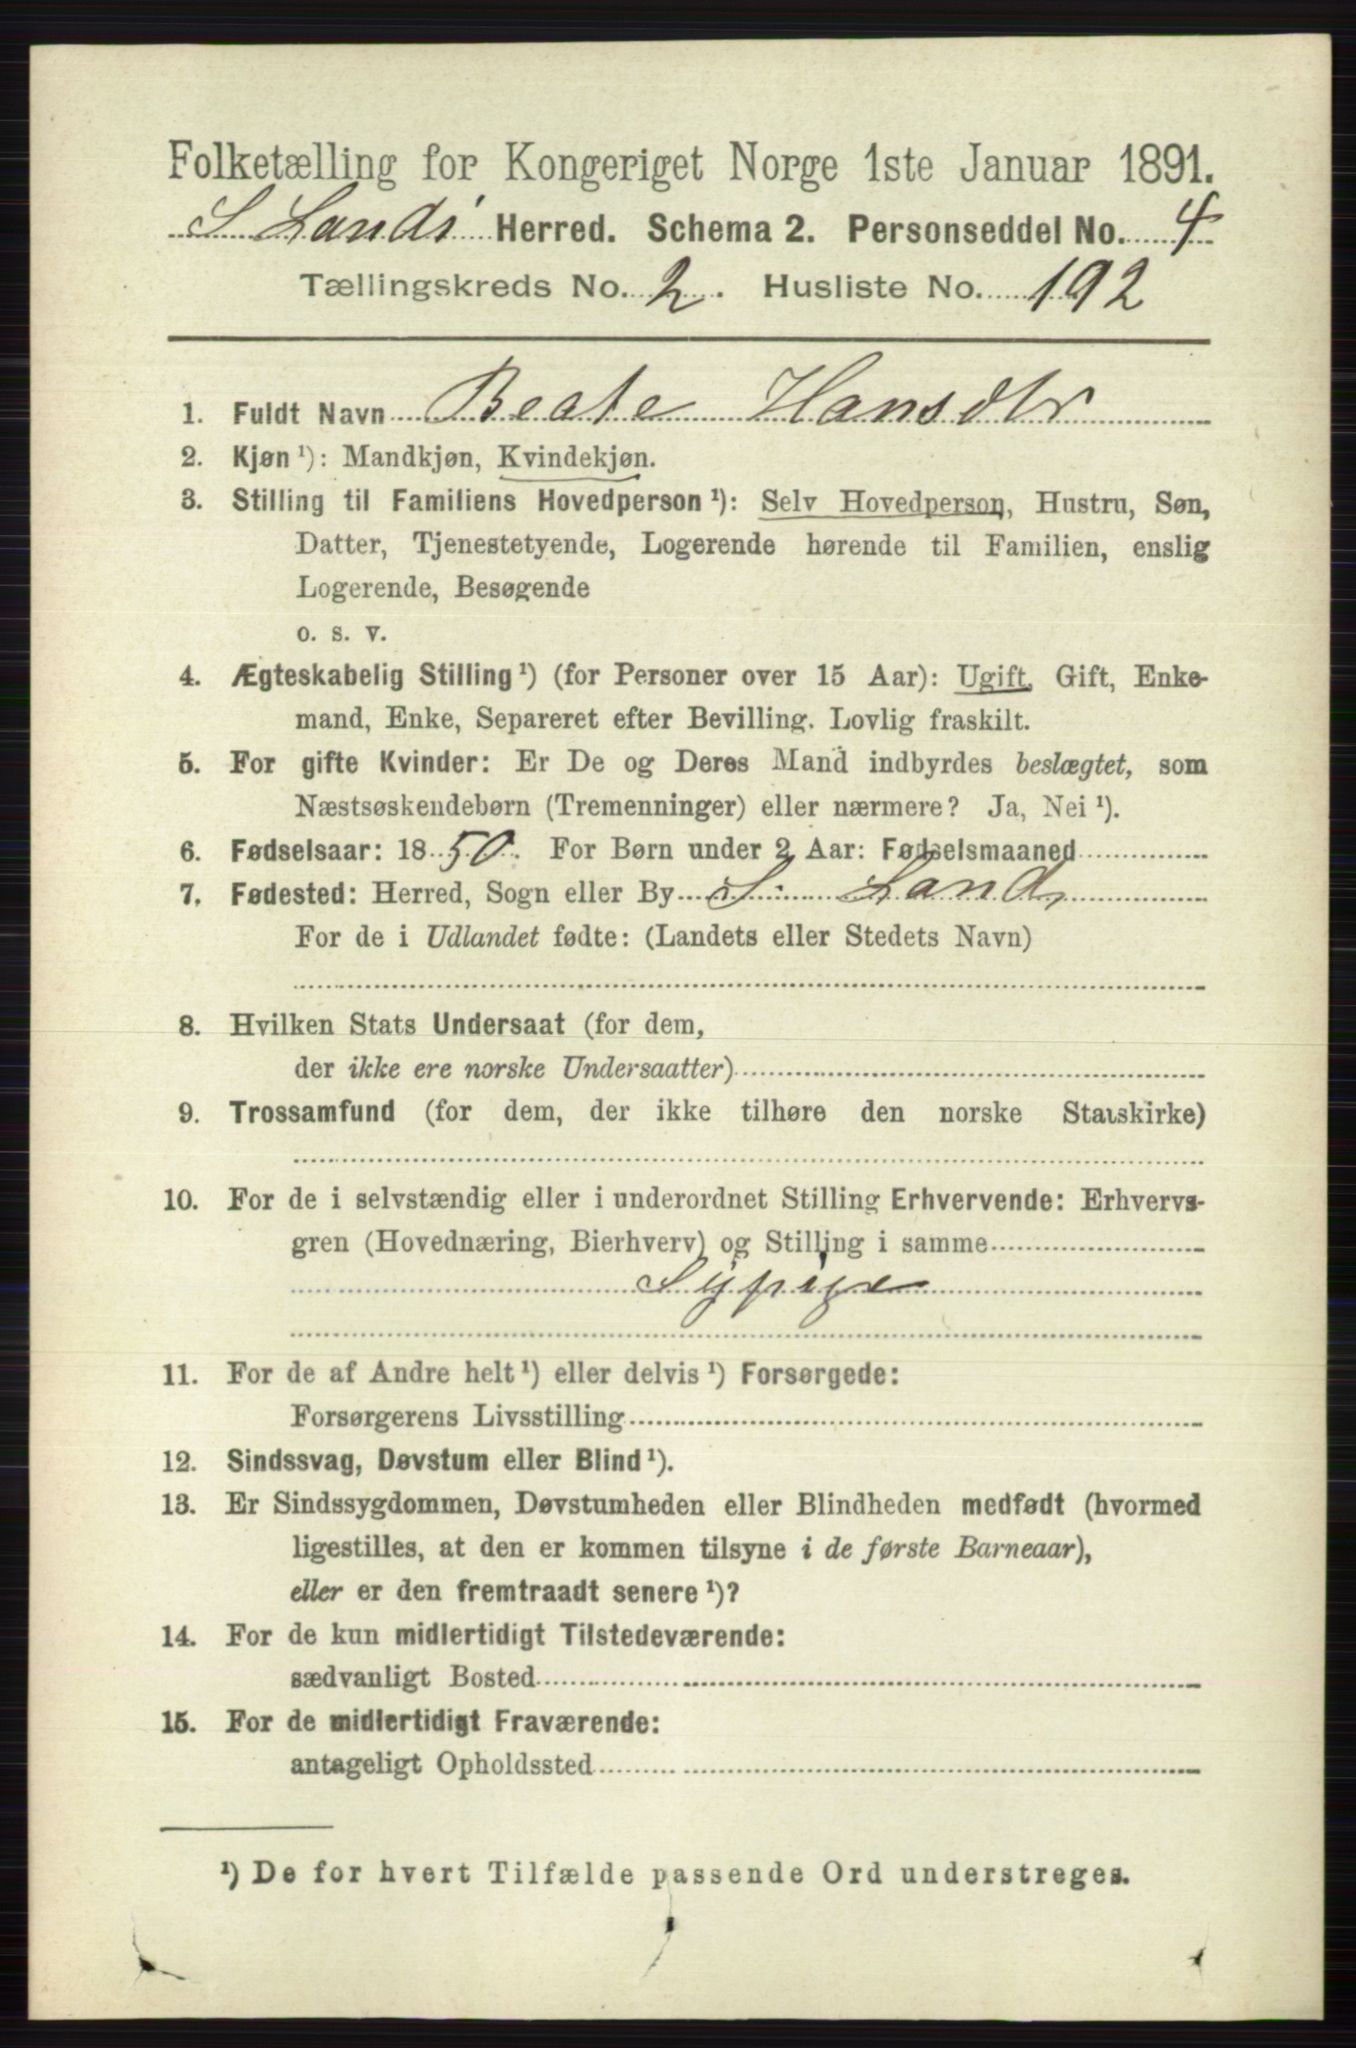 Folketælling for Kongeriget Norge 1ste Januar 1891.
S Lands Herred. Schema 2. Personseddel No. 4
Tællingskreds No. 2. Husliste No. 192
1. Fuldt Navn Beate Hansdtr
2. Kjøn ¹): Mandkjøn, Kvindekjøn.
3. Stilling til Familiens Hovedperson ¹): Selv Hovedperson, Hustru, Søn,
Datter, Tjenestetyende, Logerende hørende til Familien, enslig
Logerende, Besøgende
o. s. v.
4. Ægteskabelig Stilling ¹) (for Personer over 15 Aar): Ugift, Gift, Enke-
mand, Enke, Separeret efter Bevilling. Lovlig fraskilt.
5. For gifte Kvinder: Er De og Deres Mand indbyrdes beslægtet, som
Næstsøskendebørn (Tremenninger) eller nærmere? Ja, Nei ¹).
6. Fødselsaar: 1850. For Børn under 2 Aar: Fødselsmaaned
7. Fødested: Herred, Sogn eller By S. Land
For de i Udlandet fødte: (Landets eller Stedets Navn)
8. Hvilken Stats Undersaat (for dem,
der ikke ere norske Undersaatter)
9. Trossamfund (for dem, der ikke tilhøre den norske Statskirke)
10. For de i selvstændig eller i underordnet Stilling Erhvervende: Erhvervs-
gren (Hovednæring, Bierhverv) og Stilling i samme
Sypige
11. For de af Andre helt ¹) eller delvis ¹) Forsørgede:
Forsørgerens Livsstilling
12. Sindssvag, Døvstum eller Blind ¹).
13. Er Sindssygdommen, Døvstumheden eller Blindheden medfødt (hvormed
ligestilles, at den er kommen tilsyne i de første Barneaar),
eller er den fremtraadt senere ¹)?
14. For de kun midlertidigt Tilstedeværende:
sædvanligt Bosted
15. For de midlertidigt Fraværende:
antageligt Opholdssted
¹) De for hvert Tilfælde passende Ord understreges.